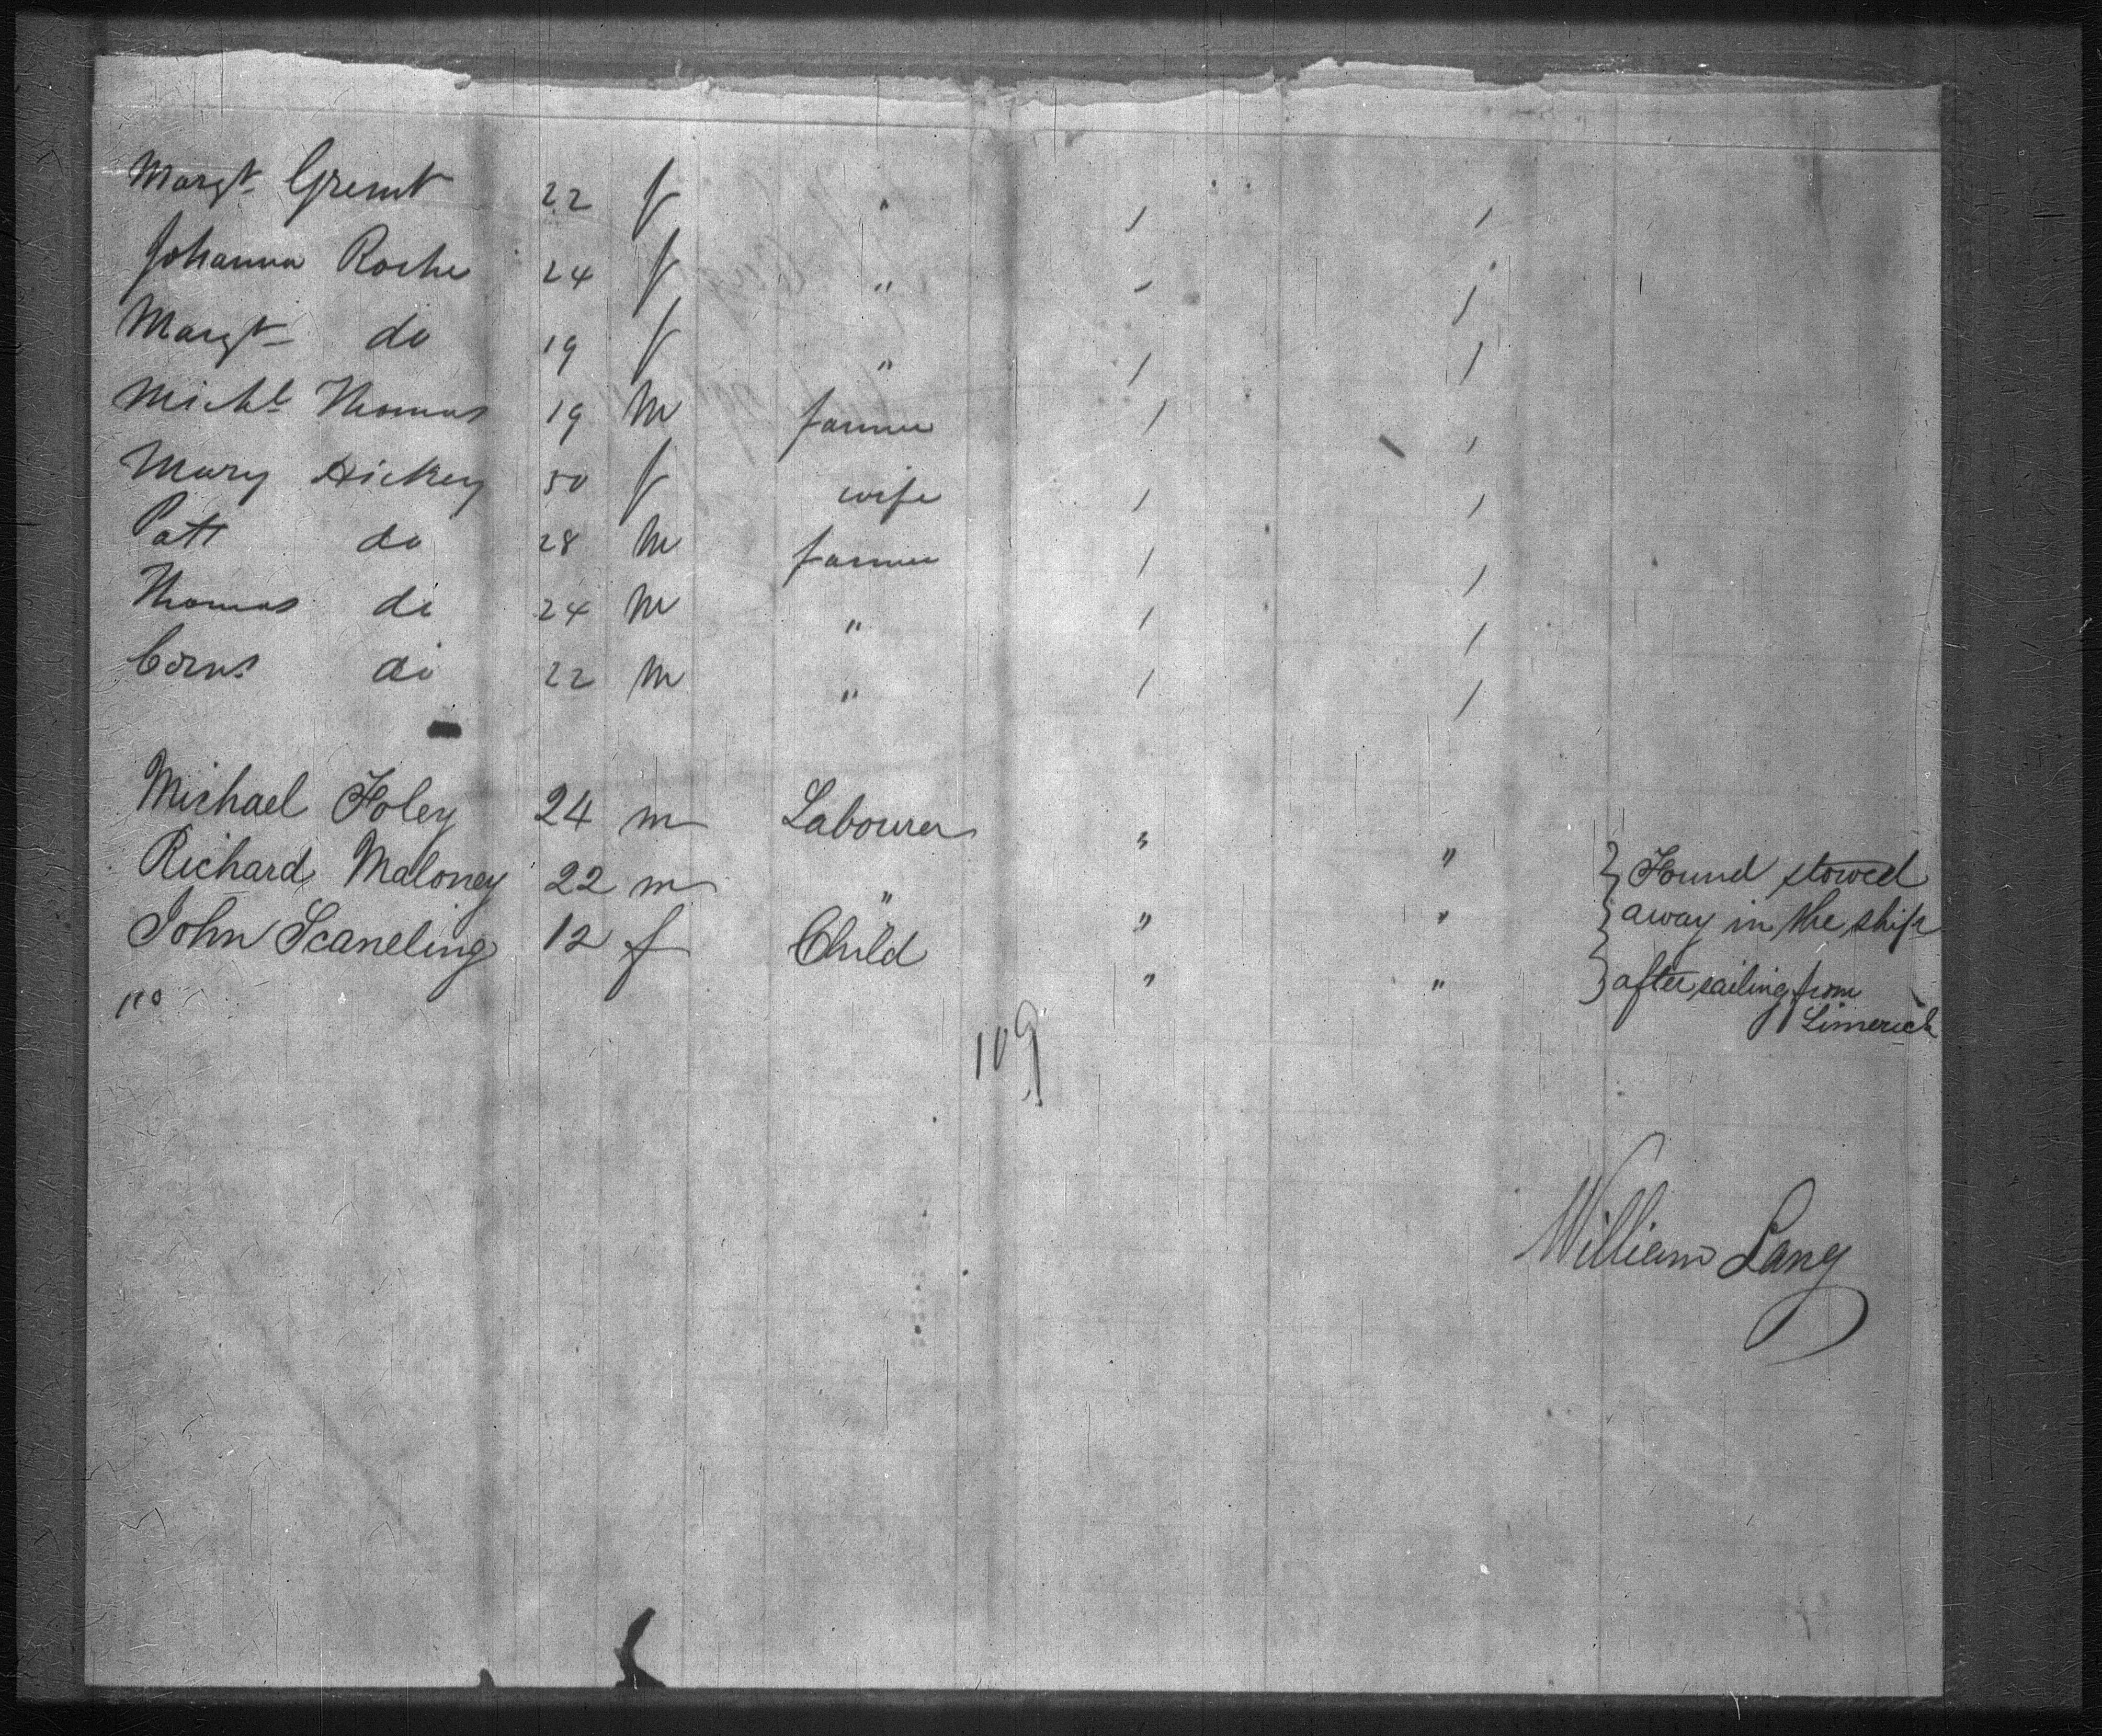 Margt. 22 f " / /
Johanna Roche 24 f " / /
Margt. do 19 f " / /
Michl. Thomas 19 M farmer / /
Mary Hickey 50 f wife / /
Patt do 28 M farmer / /
Thomas do 24 M " / /
Corns. do 22 M " / /
Michael Foley 24 m Labourer " "
Richard Maloney 22 m " " " } Found stowed
John Scaneling 12 f Child " " } away in the ship
} after sailing from
Limerick
110
109
William Lang